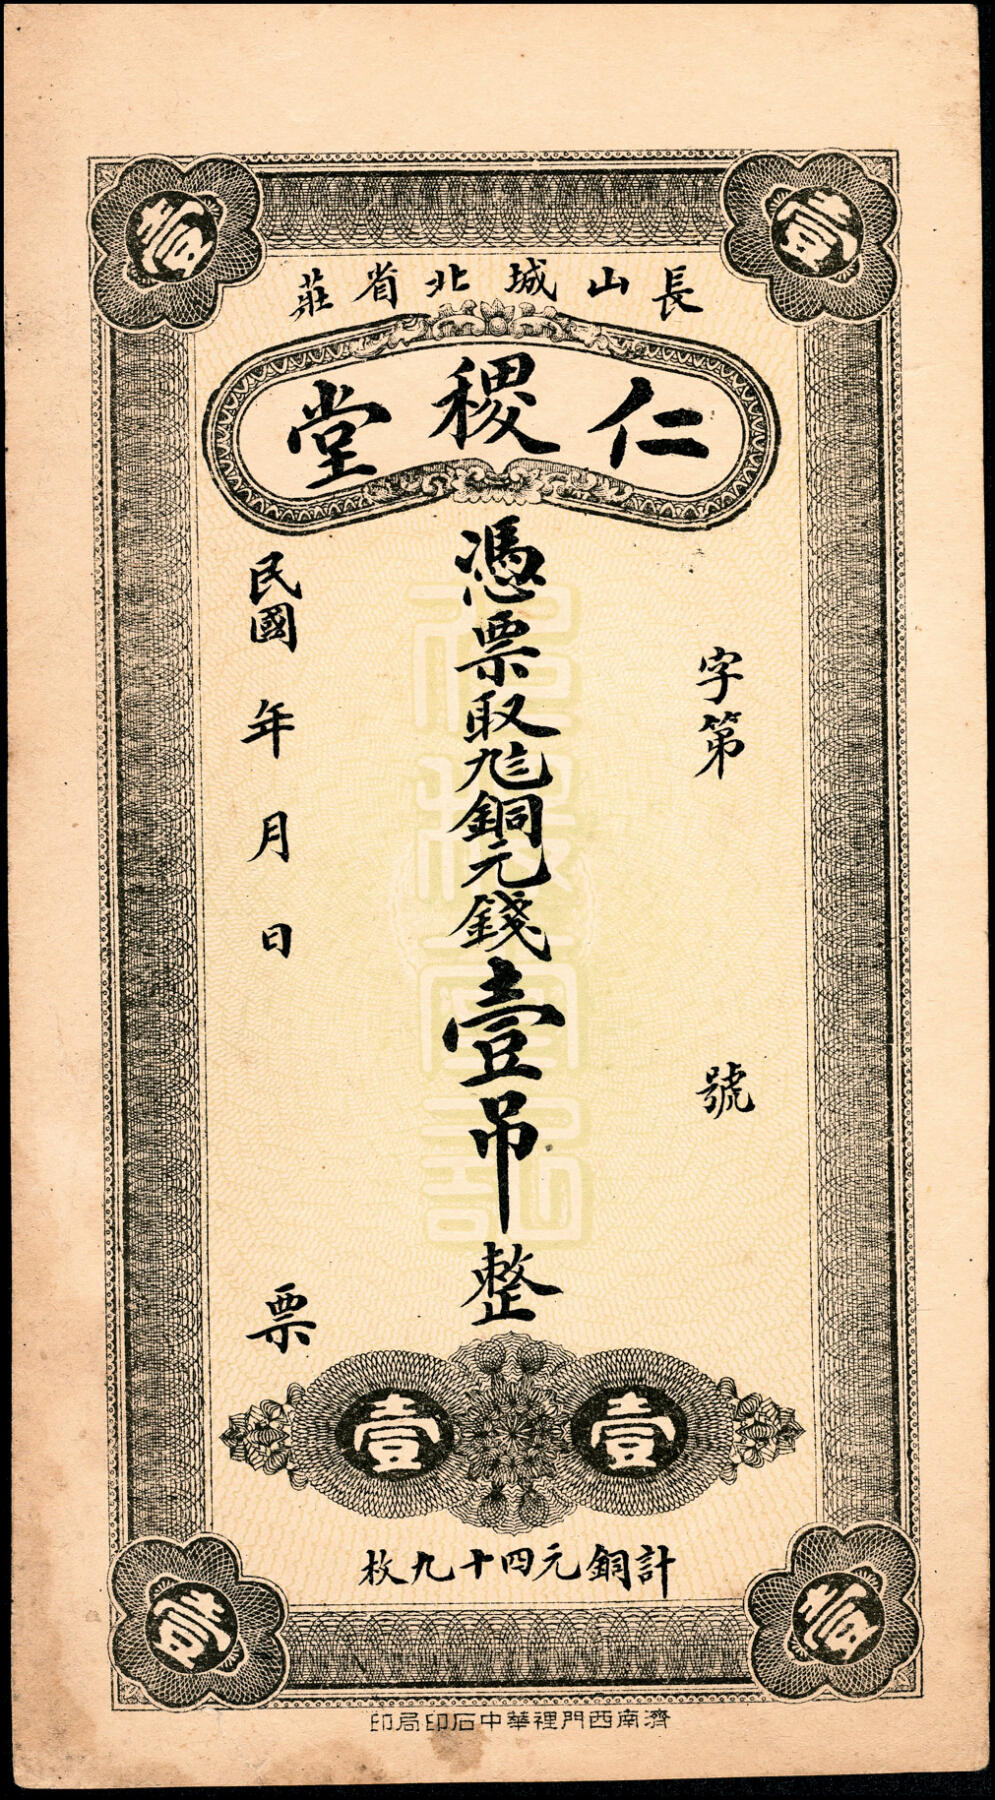 壹 壹
長山城北省莊
仁稷堂
字第 號
憑票取九三銅元錢壹吊整
民國 年 月 日 票
壹 壹
計銅元四十九枚
壹 壹
濟南西門裡華中石印局印